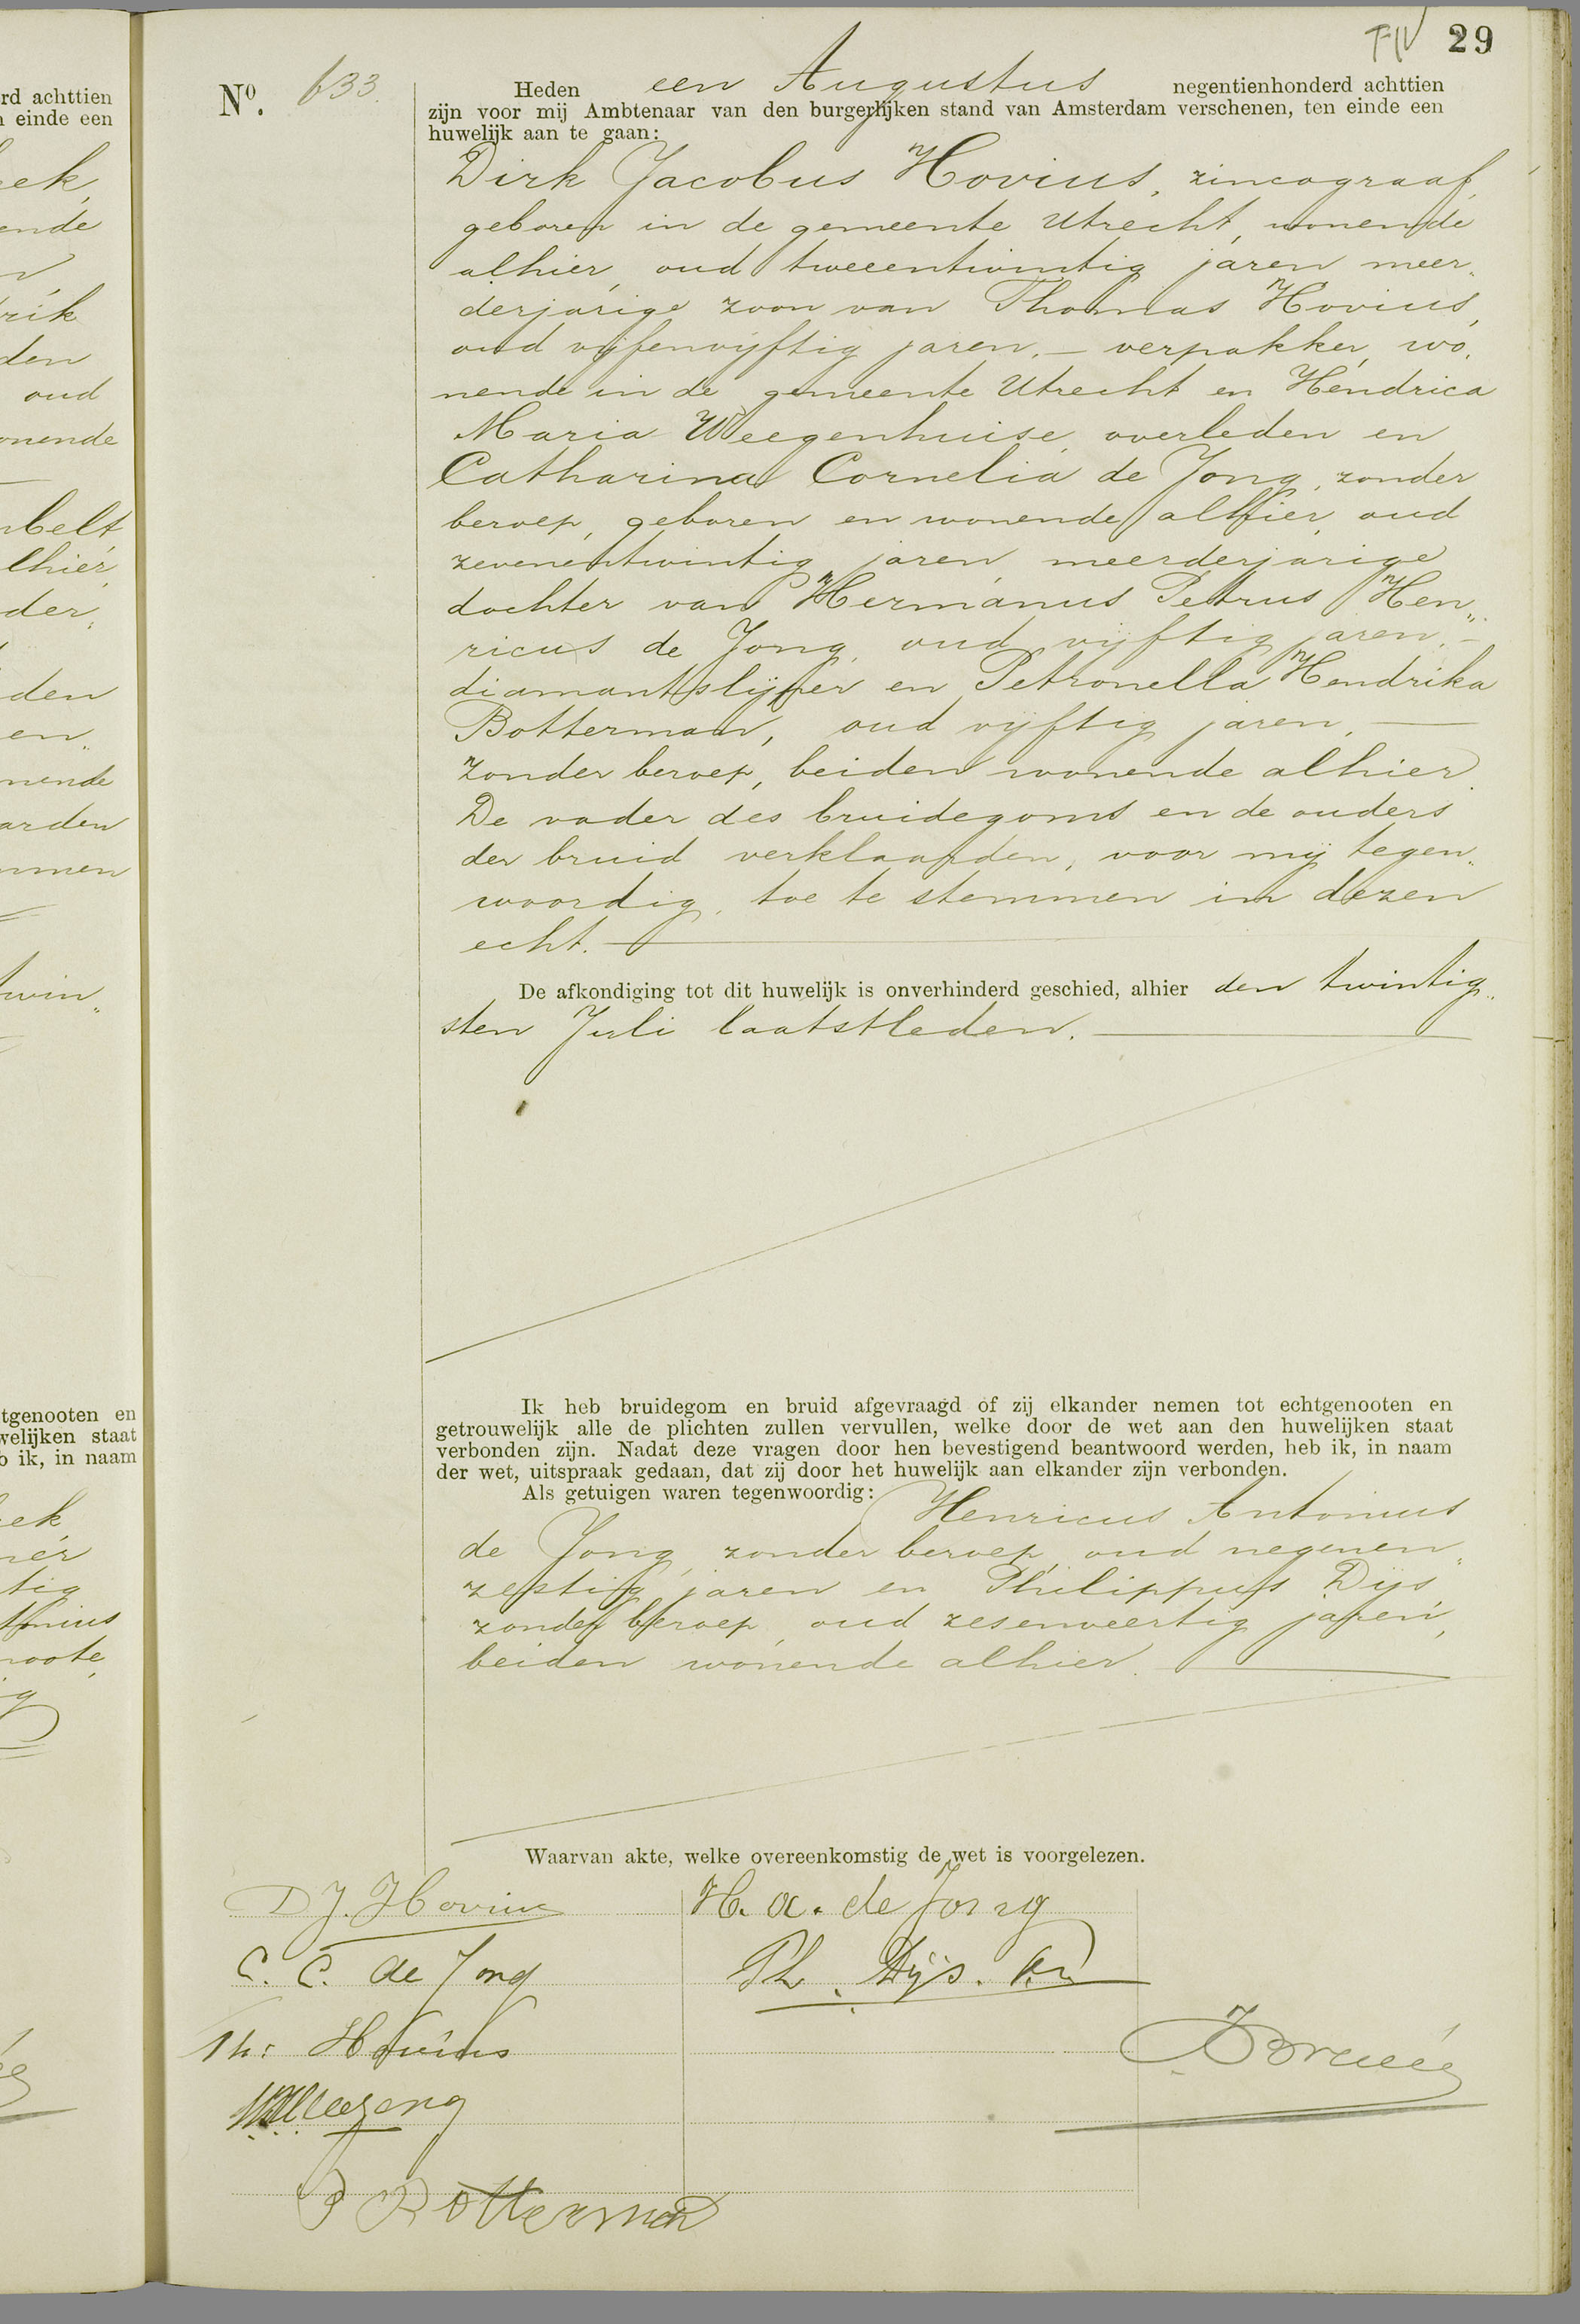 29
Nº. 633.
Heden een Augustus negentienhonderd achttien
zijn voor mij Ambtenaar van den burgerlijken stand van Amsterdam verschenen, ten einde een
huwelijk aan te gaan:
Dirk Jacobus Hovius, zincograaf,
geboren in de gemeente Utrecht, wonende
alhier, oud tweeentwintig jaren meer„
derjarige zoon van Thomas Hovius,
oud vijfenvijftig jaren, — verpakker, wo„
nende in de gemeente Utrecht en Hendrica
Maria Weegenhuise, overleden en
Catharina Cornelia de Jong, zonder
beroep, geboren en wonende alhier, oud
zevenentwintig jaren, meerderjarige
dochter van Hermanus Petrus Hen„
ricus de Jong, oud vijftig jaren, —
diamantslijper en Petronella Hendrika
Botterman, oud vijftig jaren, —
zonder beroep, beiden wonende alhier.
De vader des bruidegoms en de ouders
der bruid verklaarden, voor mij tegen„
woordig, toe te stemmen in dezen
echt. —
De afkondiging tot dit huwelijk is onverhinderd geschied, alhier den twintig„
sten Juli laatstleden. —
Ik heb bruidegom en bruid afgevraagd of zij elkander nemen tot echtgenooten en
getrouwelijk alle de plichten zullen vervullen, welke door de wet aan den huwelijken staat
verbonden zijn. Nadat deze vragen door hen bevestigend beantwoord werden, heb ik, in naam
der wet, uitspraak gedaan, dat zij door het huwelijk aan elkander zijn verbonden.
Als getuigen waren tegenwoordig: Henricus Antonius
de Jong, zonder beroep, oud negenen„
zestig jaren en Philippus Dijs
zonder beroep, oud zesenveertig jaren,
beiden wonende alhier. —
Waarvan akte, welke overeenkomstig de wet is voorgelezen.
D J. Hovius H. A. de Jong
C. C. de Jong Ph. Dijs.
Th: Hovius
P Botterman
rd achttien
einde een
eek,
ende
rik
den
oud
onende
belt
lhier,
der,
den
en„
nende
arden
mmen
twin„
tgenooten en
welijken staat
ik, in naam
eek
tig
noote